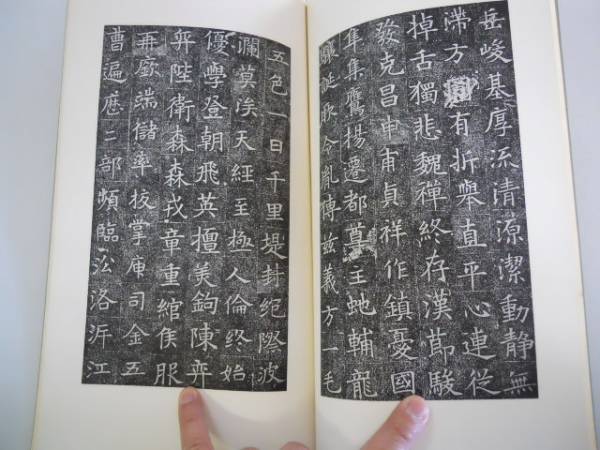 岳峻基厚流清源潔動靜無
滯方圓有折舉直平心連從
掉舌獨悲魏禪終存漢節駿
發克昌申甫貞祥作鎮憂國
隼集鷹揚遷都尊主虵輔龍
誕歌令胤傳茲義方一毛
五色一日千里堤封絕際波
瀾莫涘天經至極人倫終始
優學登朝飛英擅美鉤陳弈
弈陛衛森森戎章重綰侯服
再廢端儲率校掌庫司金五
曹遍歷三部頻臨沄洛泝江